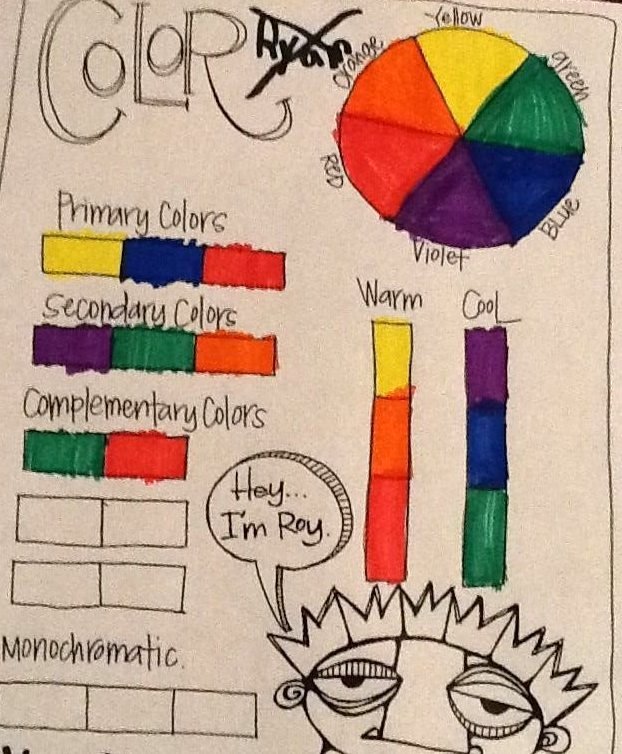 COLOR
Ryan
Yellow
Orange
green
RED
BLUE
Violet
Primary Colors
Secondary Colors
Complementary Colors
Warm
Cool
Hey...
I'm Roy.
Monochromatic.